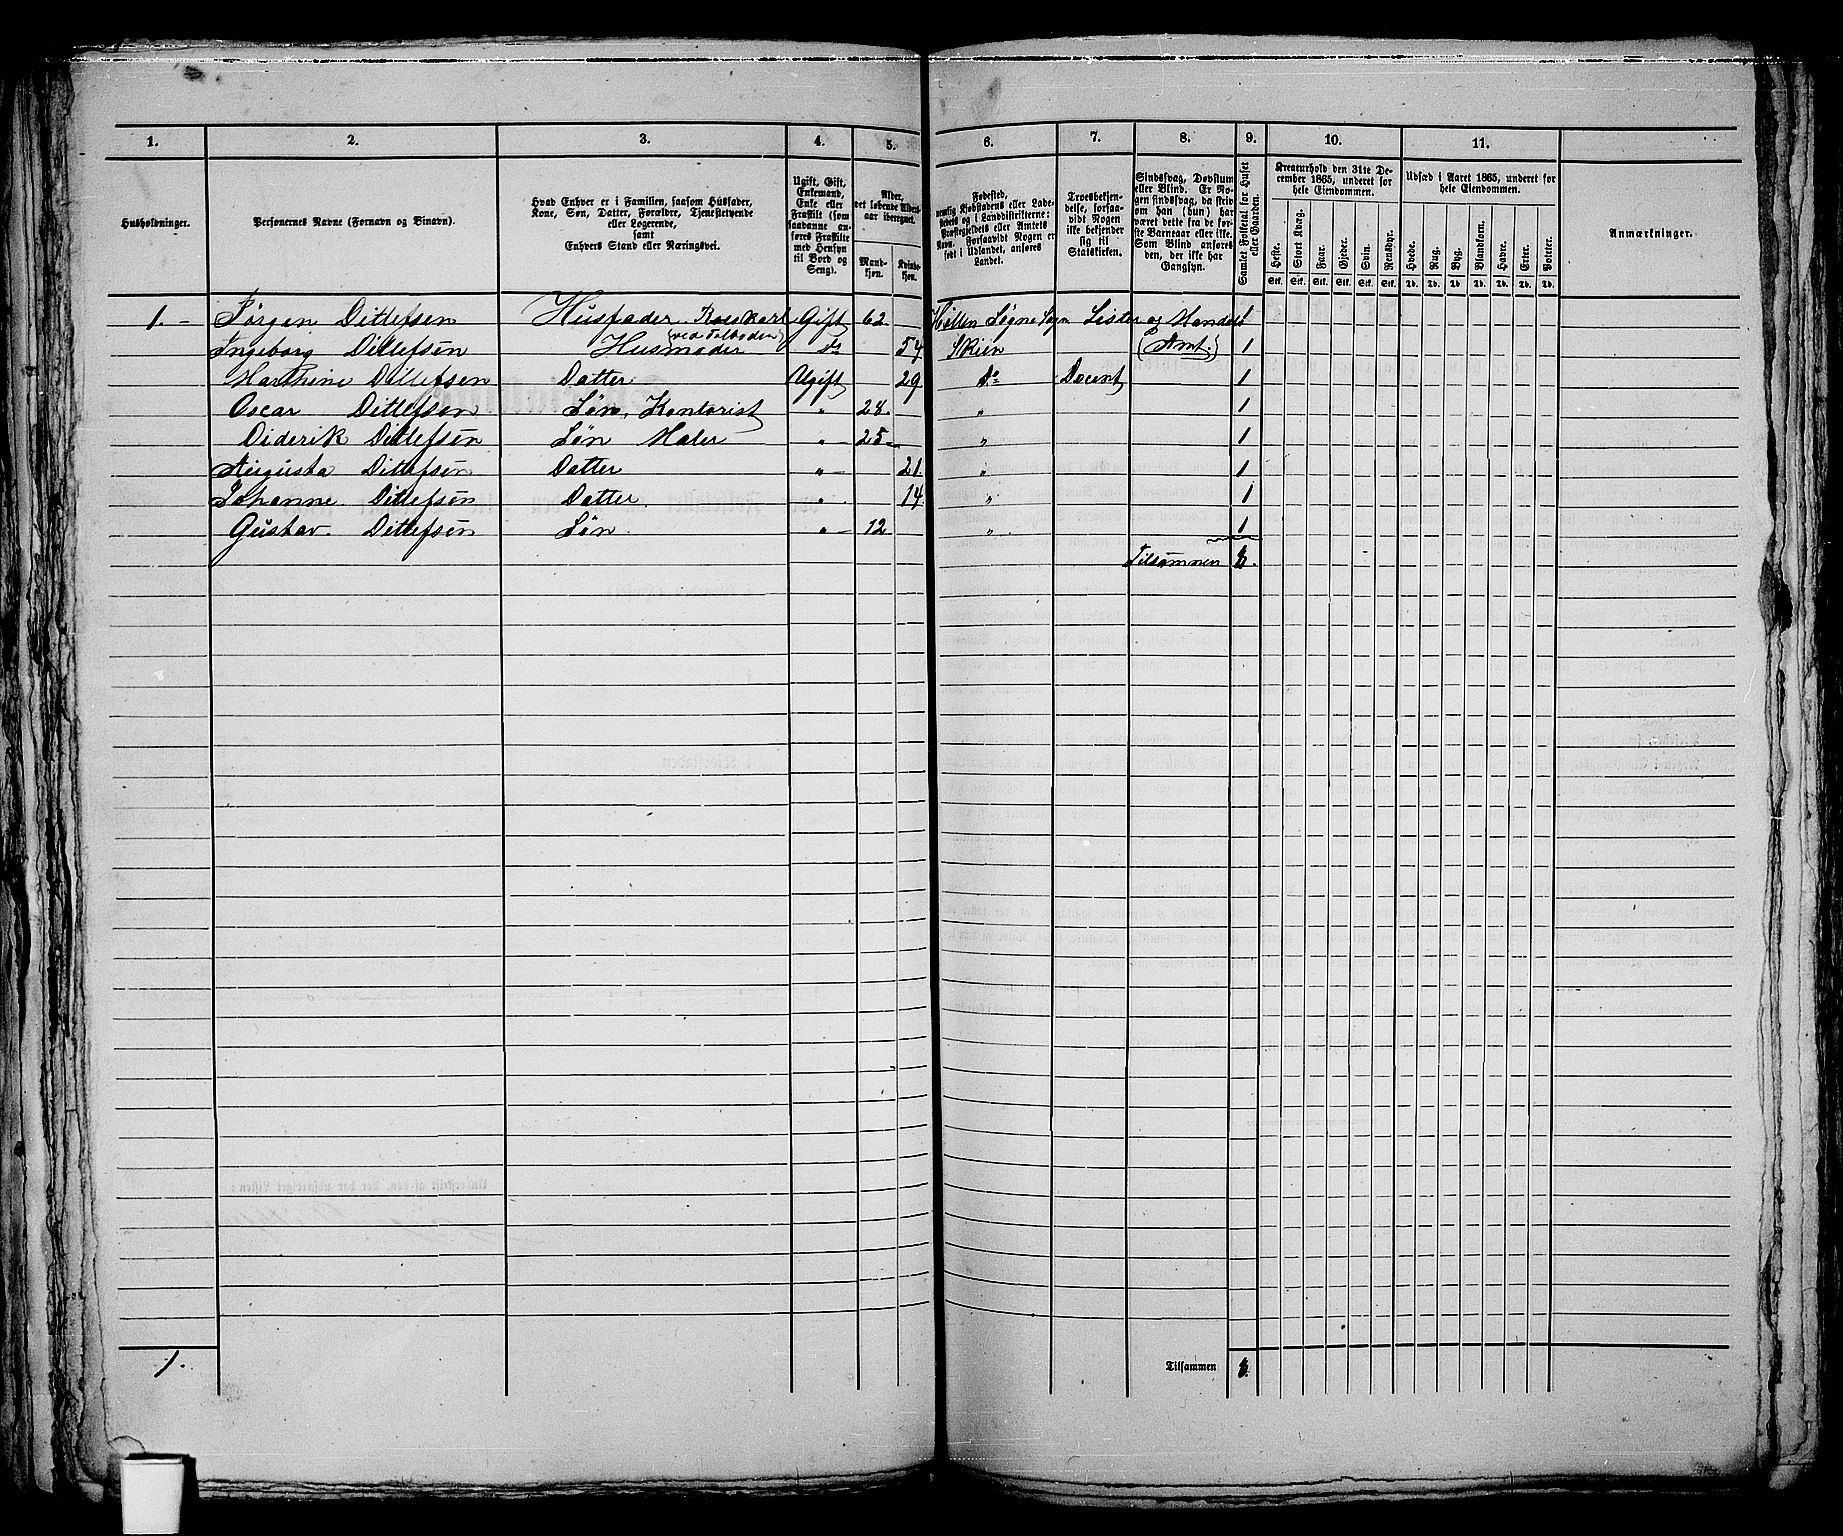 1. 2. 3. 4. 5. 6. 7. 8. 9. 10. 11.
Husholdninger.
Personernes Navne (Fornavn og Binavn).
Hvad Enhver er i Familien, saasom Husfader,
Kone, Søn, Datter, Forældre, Tjenestetyende
eller Logerende,
samt
Enhvers Stand eller Næringsvei.
Ugift, Gift,
Enkemand,
Enke eller
Fraskilt (som
saadanne an-
føres Fraskilte
med Hensyn
til Bord og
Seng).
Alder,
det løbende Alders-
aar iberegnet.
Mand-
kjøn.
Kvinde-
kjøn.
Fødested,
nemlig Kjøbstadens eller Lade-
stedets og i Landdistrikterne:
Præstegjeldets eller Amtets
Navn. Forsaavidt Nogen er
født i Udlandet, anføres
Landet.
Troesbekjen-
delse, forsaa-
vidt Nogen
ikke bekjender
sig til
Statskirken.
Sindssvag, Døvstum
eller Blind. Er No-
gen sindssvag, da skriv
om han (hun) har
været dette fra de før-
ste Barneaar eller ikke.
Som Blind anføres
den, der ikke har
Gangsyn.
Samlet Folketal for Huset
eller Gaarden.
Kreaturhold den 31te De-
cember 1865, underet for
hele Eiendommen.
Heste. Stort Kvæg. Faar. Gjeder. Svin. Rensdyr.
Stk. Stk. Stk. Stk. Stk. Stk.
Udsæd i Aaret 1865, underet for
hele Eiendommen.
Hvede. Rug. Byg. Blandkorn. Havre. Erter. Poteter.
Td. Td. Td. Td. Td. Td. Td.
Anmærkninger.
1. Jørgen Ditlefsen Husfader, Roeskarl Gift 62 Hollen Søgne Sogn Lister og Mandals 1
(ved Tolboden)
Ingeborg Ditlefsen Husmoder Do 54 Skien (Amt.) 1
Marthine Ditlefsen Datter Ugift 29 Do Docent 1
Oscar Ditlefsen Søn, Kontorist " 28 " 1
Diderik Ditlefsen Søn Maler " 25 " 1
Augusta Ditlefsen Datter " 21 " 1
Johanne Ditlefsen Datter " 14 " 1
Gustav Ditlefsen Søn " 12 " 1
Tilsammen 8.
1. Tilsammen 8